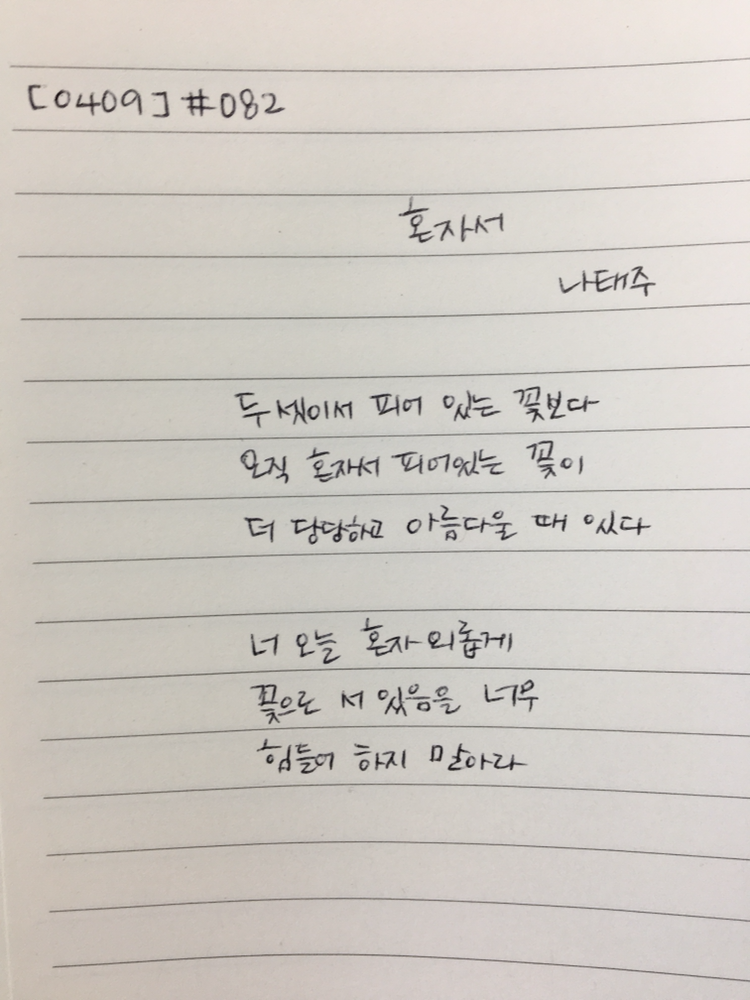 [0409] #082
혼자서
나태주
두셋이서 피어 있는 꽃보다
오직 혼자서 피어있는 꽃이
더 당당하고 아름다울 때 있다
너 오늘 혼자 외롭게
꽃으로 서 있음을 너무
힘들어 하지 말아라